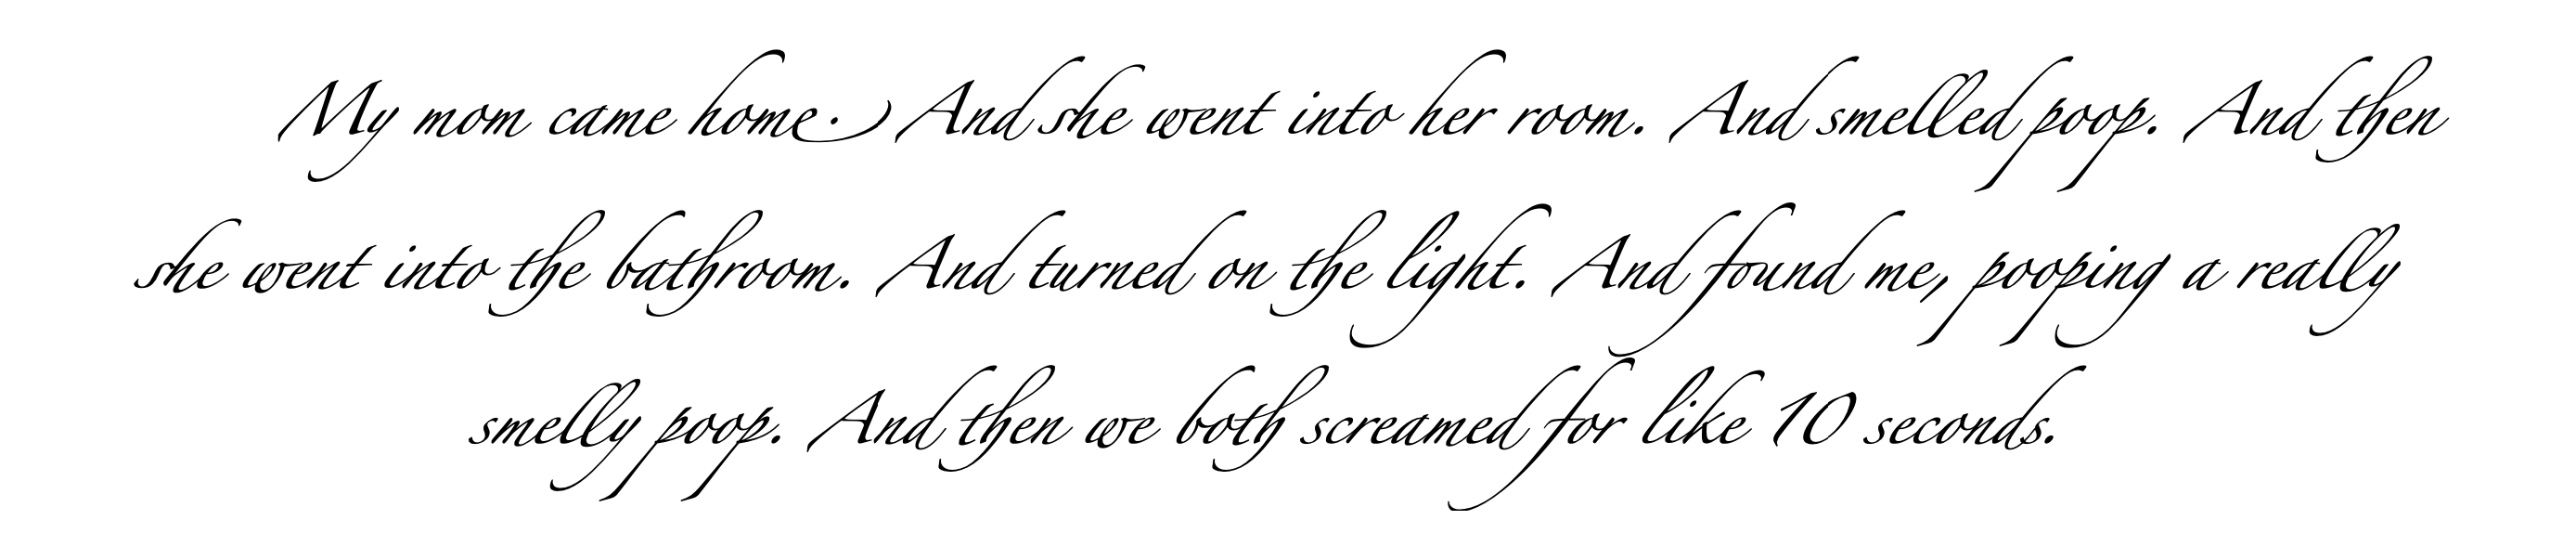 My mom came home. And she went into her room. And smelled poop. And then
she went into the bathroom. And turned on the light. And found me, pooping a really
smelly poop. And then we both screamed for like 10 seconds.